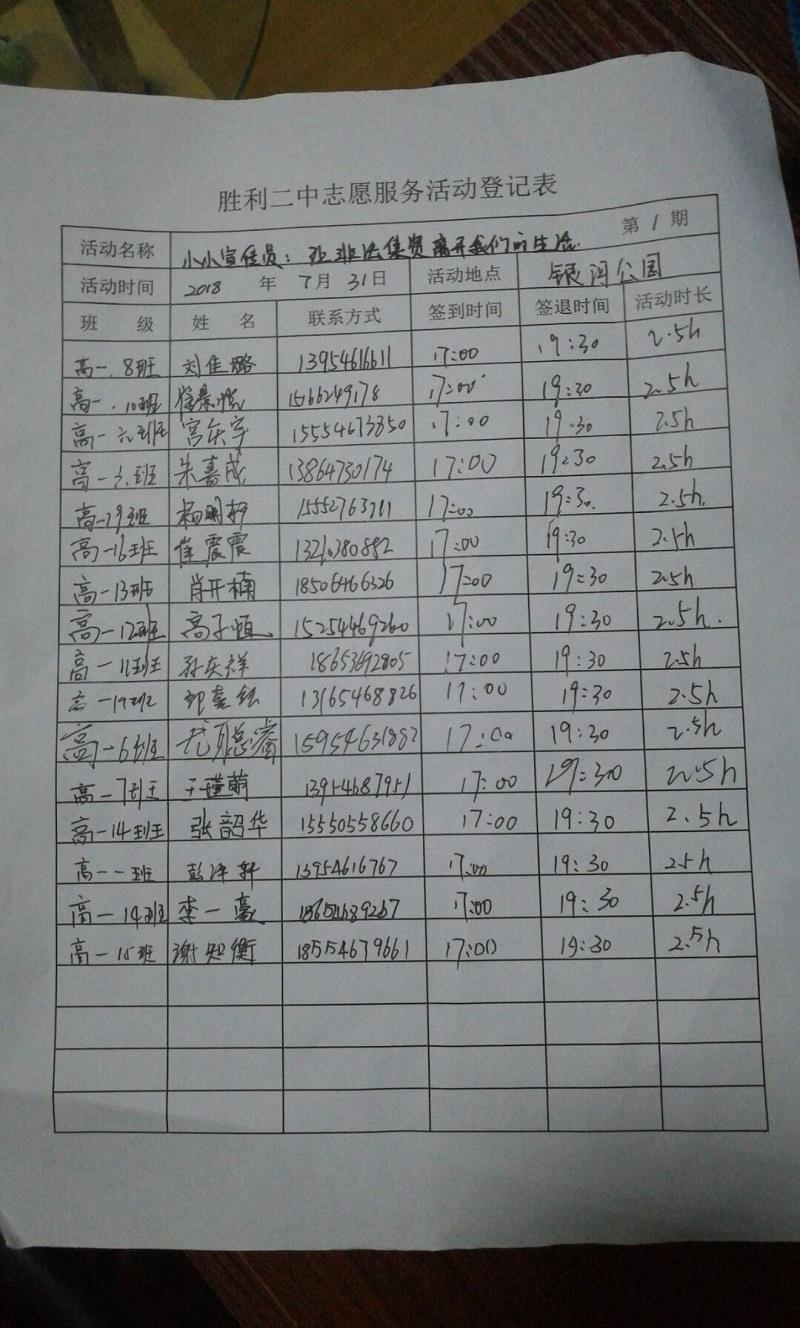 胜利二中志愿服务活动登记表
活动名称 小小宣传员：让非法集资离开我们的生活. 第1期
活动时间 2018年7月31日 活动地点 银河公园
班级 姓名 联系方式 签到时间 签退时间 活动时长
高一.8班 刘佳璐 13954616611 17:00 19:30 2.5h
高一.10班 15066249178 17:00 19:30 2.5h
高一六班 宫乐宇 15554673350 17:00 19:30 2.5h
高一六班 朱嘉成 13864730174 17:00 19:30 2.5h
高一19班 杨明轩 15552763711 17:00 19:30. 2.5h.
高一16班 崔震震 17:00 19:30 2.5h
高一13班 肖开楠 18506466326 17:00 19:30 2.5h
高一12班 高子恒 15254469260 17:00 19:30 2.5h.
高一11班 孙庆祥 18653692805 17:00 19:30 2.5h
高一19班 13165468826 17:00 19:30 2.5h
高一6班 尤聪睿 15954631882 17:00 19:30 2.5h
高一7班 王瑾萌 13954687951 17:00 19:30 2.5h
高一14班 张韶华 15550558660 17:00 19:30 2.5h
高一一班 彭泽轩 13954616767 17:00 19:30 2.5h
高一14班 李一豪 17:00 19:30 2.5h
高一15班 谢知衡 18554679661 17:00 19:30 2.5h